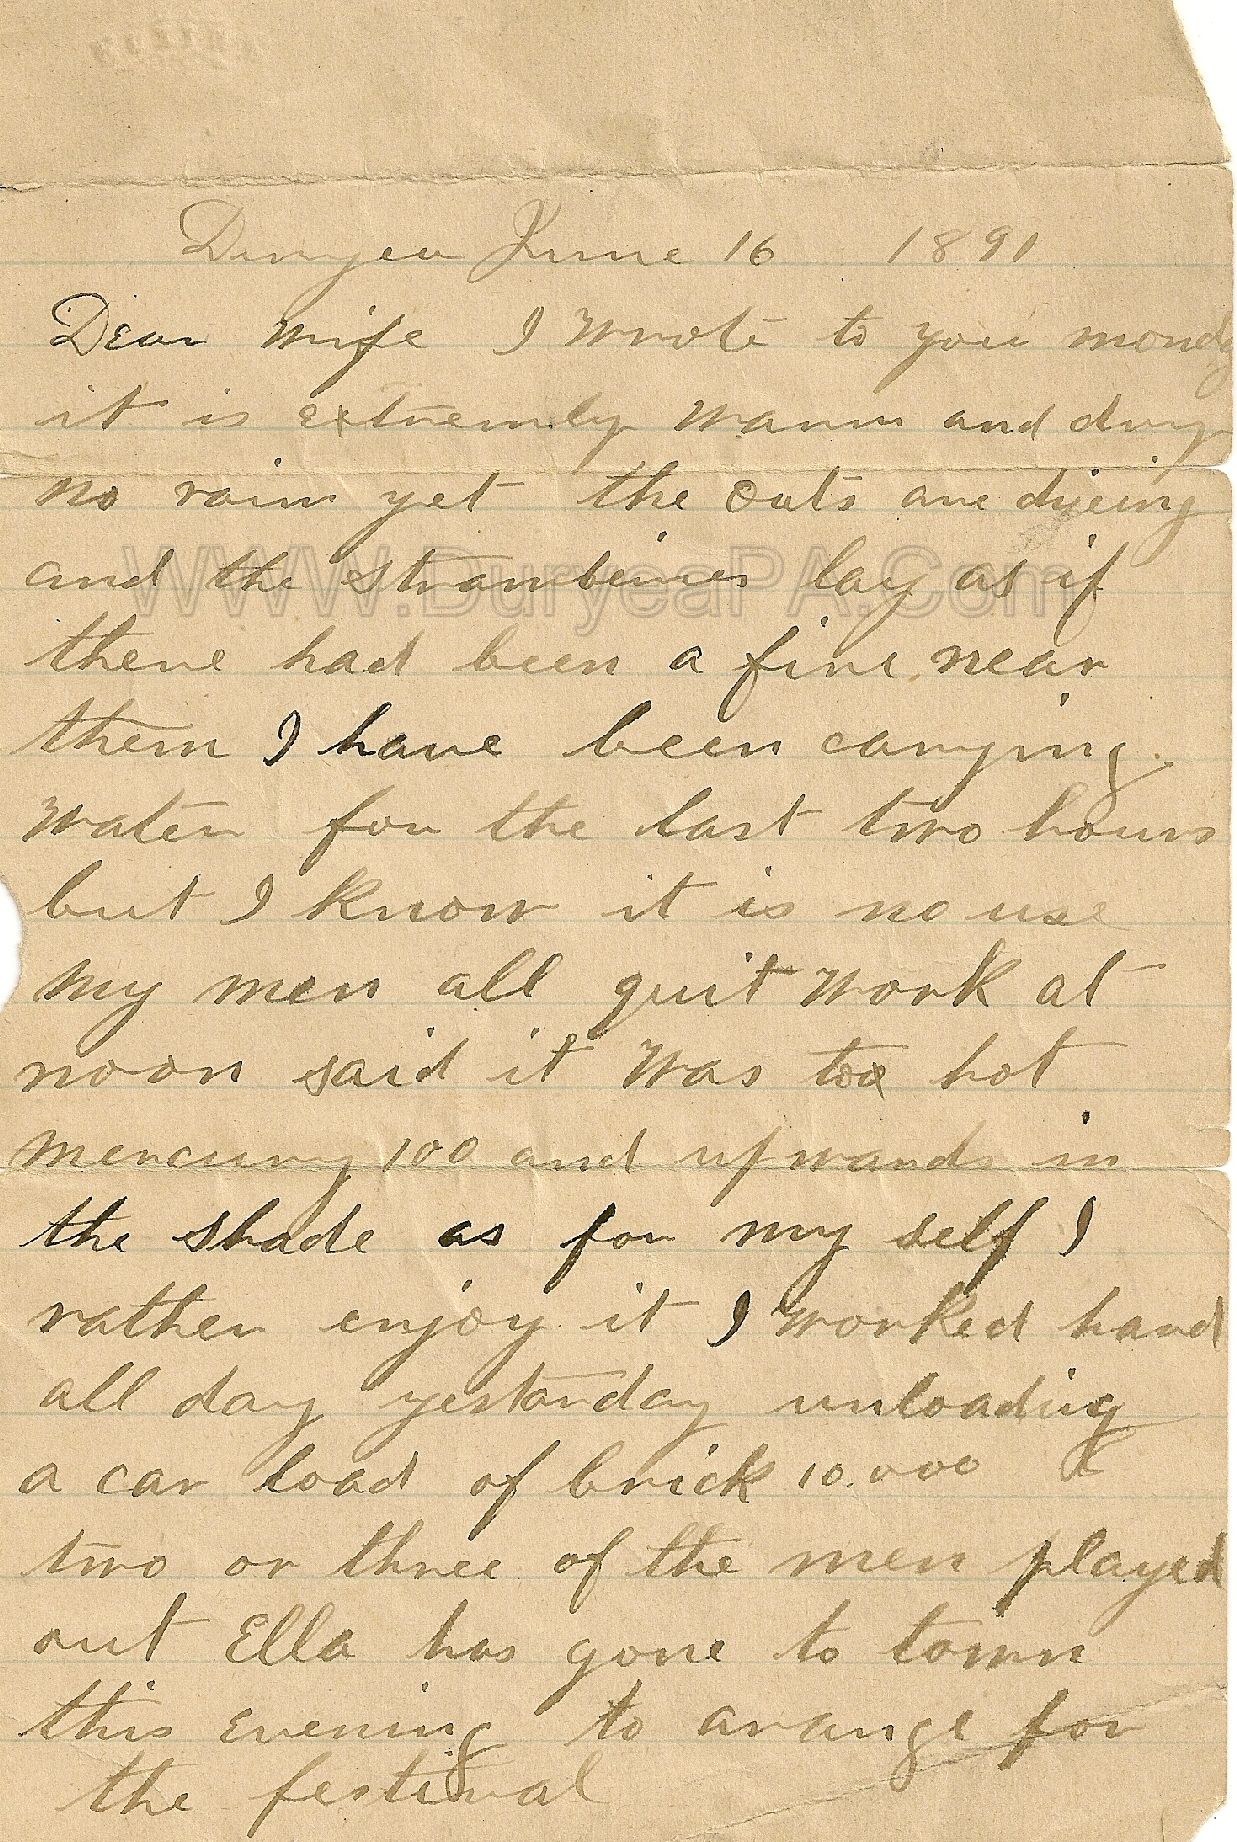 Duryea June 16 1891
Dear wife I wrote to you monday
it is extremely warm and dry
no rain yet the oats are dyeing
and the strawberries lay as if
WWW.DuryeaPA.Com
there had been a fire near
them I have been carying
water for the last two hours
but I know it is no use
my men all quit work at
noon said it was too hot
mercury 100 and upwards in
the shade as for my self I
rather enjoy it I worked hard
all day yestarday unloading
a car load of brick 10.000
two or three of the men played
out Ella has gone to town
this evening to arange for
the festival